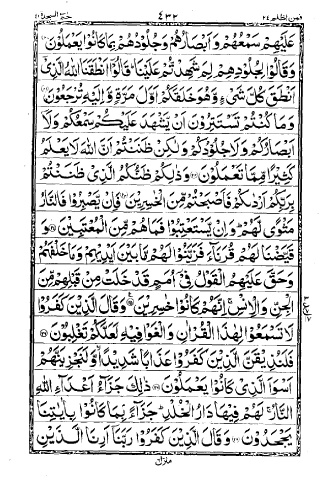 فمن اظلم ٢٤ ٤٣٢ حٰمٓ السجدة ٤١
عَلَيْهِمْ سَمْعُهُمْ وَاَبْصَارُهُمْ وَجُلُوْدُهُمْ بِمَا كَانُوْا يَعْمَلُوْنَ
وَقَالُوْا لِجُلُوْدِهِمْ لِمَ شَهِدْتُّمْ عَلَيْنَا ؕ قَالُوْۤا اَنْطَقَنَا اللّٰهُ الَّذِیْۤ
اَنْطَقَ كُلَّ شَیْءٍ وَّهُوَ خَلَقَكُمْ اَوَّلَ مَرَّةٍ وَّاِلَيْهِ تُرْجَعُوْنَ
وَمَا كُنْتُمْ تَسْتَتِرُوْنَ اَنْ يَّشْهَدَ عَلَيْكُمْ سَمْعُكُمْ وَلَاۤ
اَبْصَارُكُمْ وَلَا جُلُوْدُكُمْ وَلٰكِنْ ظَنَنْتُمْ اَنَّ اللّٰهَ لَا يَعْلَمُ
كَثِيْرًا مِّمَّا تَعْمَلُوْنَ وَذٰلِكُمْ ظَنُّكُمُ الَّذِیْ ظَنَنْتُمْ
بِرَبِّكُمْ اَرْدٰىكُمْ فَاَصْبَحْتُمْ مِّنَ الْخٰسِرِيْنَ فَاِنْ يَّصْبِرُوْا فَالنَّارُ
مَثْوًى لَّهُمْ ؕ وَاِنْ يَّسْتَعْتِبُوْا فَمَا هُمْ مِّنَ الْمُعْتَبِيْنَ وَ
قَيَّضْنَا لَهُمْ قُرَنَآءَ فَزَيَّنُوْا لَهُمْ مَّا بَيْنَ اَيْدِيْهِمْ وَمَا خَلْفَهُمْ
وَحَقَّ عَلَيْهِمُ الْقَوْلُ فِیْۤ اُمَمٍ قَدْ خَلَتْ مِنْ قَبْلِهِمْ مِّنَ
الْجِنِّ وَالْاِنْسِ ۚ اِنَّهُمْ كَانُوْا خٰسِرِيْنَ وَقَالَ الَّذِيْنَ كَفَرُوْا
لَا تَسْمَعُوْا لِهٰذَا الْقُرْاٰنِ وَالْغَوْا فِيْهِ لَعَلَّكُمْ تَغْلِبُوْنَ
فَلَنُذِيْقَنَّ الَّذِيْنَ كَفَرُوْا عَذَابًا شَدِيْدًا ۙ وَّلَنَجْزِيَنَّهُمْ
اَسْوَاَ الَّذِیْ كَانُوْا يَعْمَلُوْنَ ذٰلِكَ جَزَآءُ اَعْدَآءِ اللّٰهِ
النَّارُ ۚ لَهُمْ فِيْهَا دَارُ الْخُلْدِ ؕ جَزَآءًۢ بِمَا كَانُوْا بِاٰيٰتِنَا
يَجْحَدُوْنَ وَقَالَ الَّذِيْنَ كَفَرُوْا رَبَّنَاۤ اَرِنَا الَّذَيْنِ
منزل